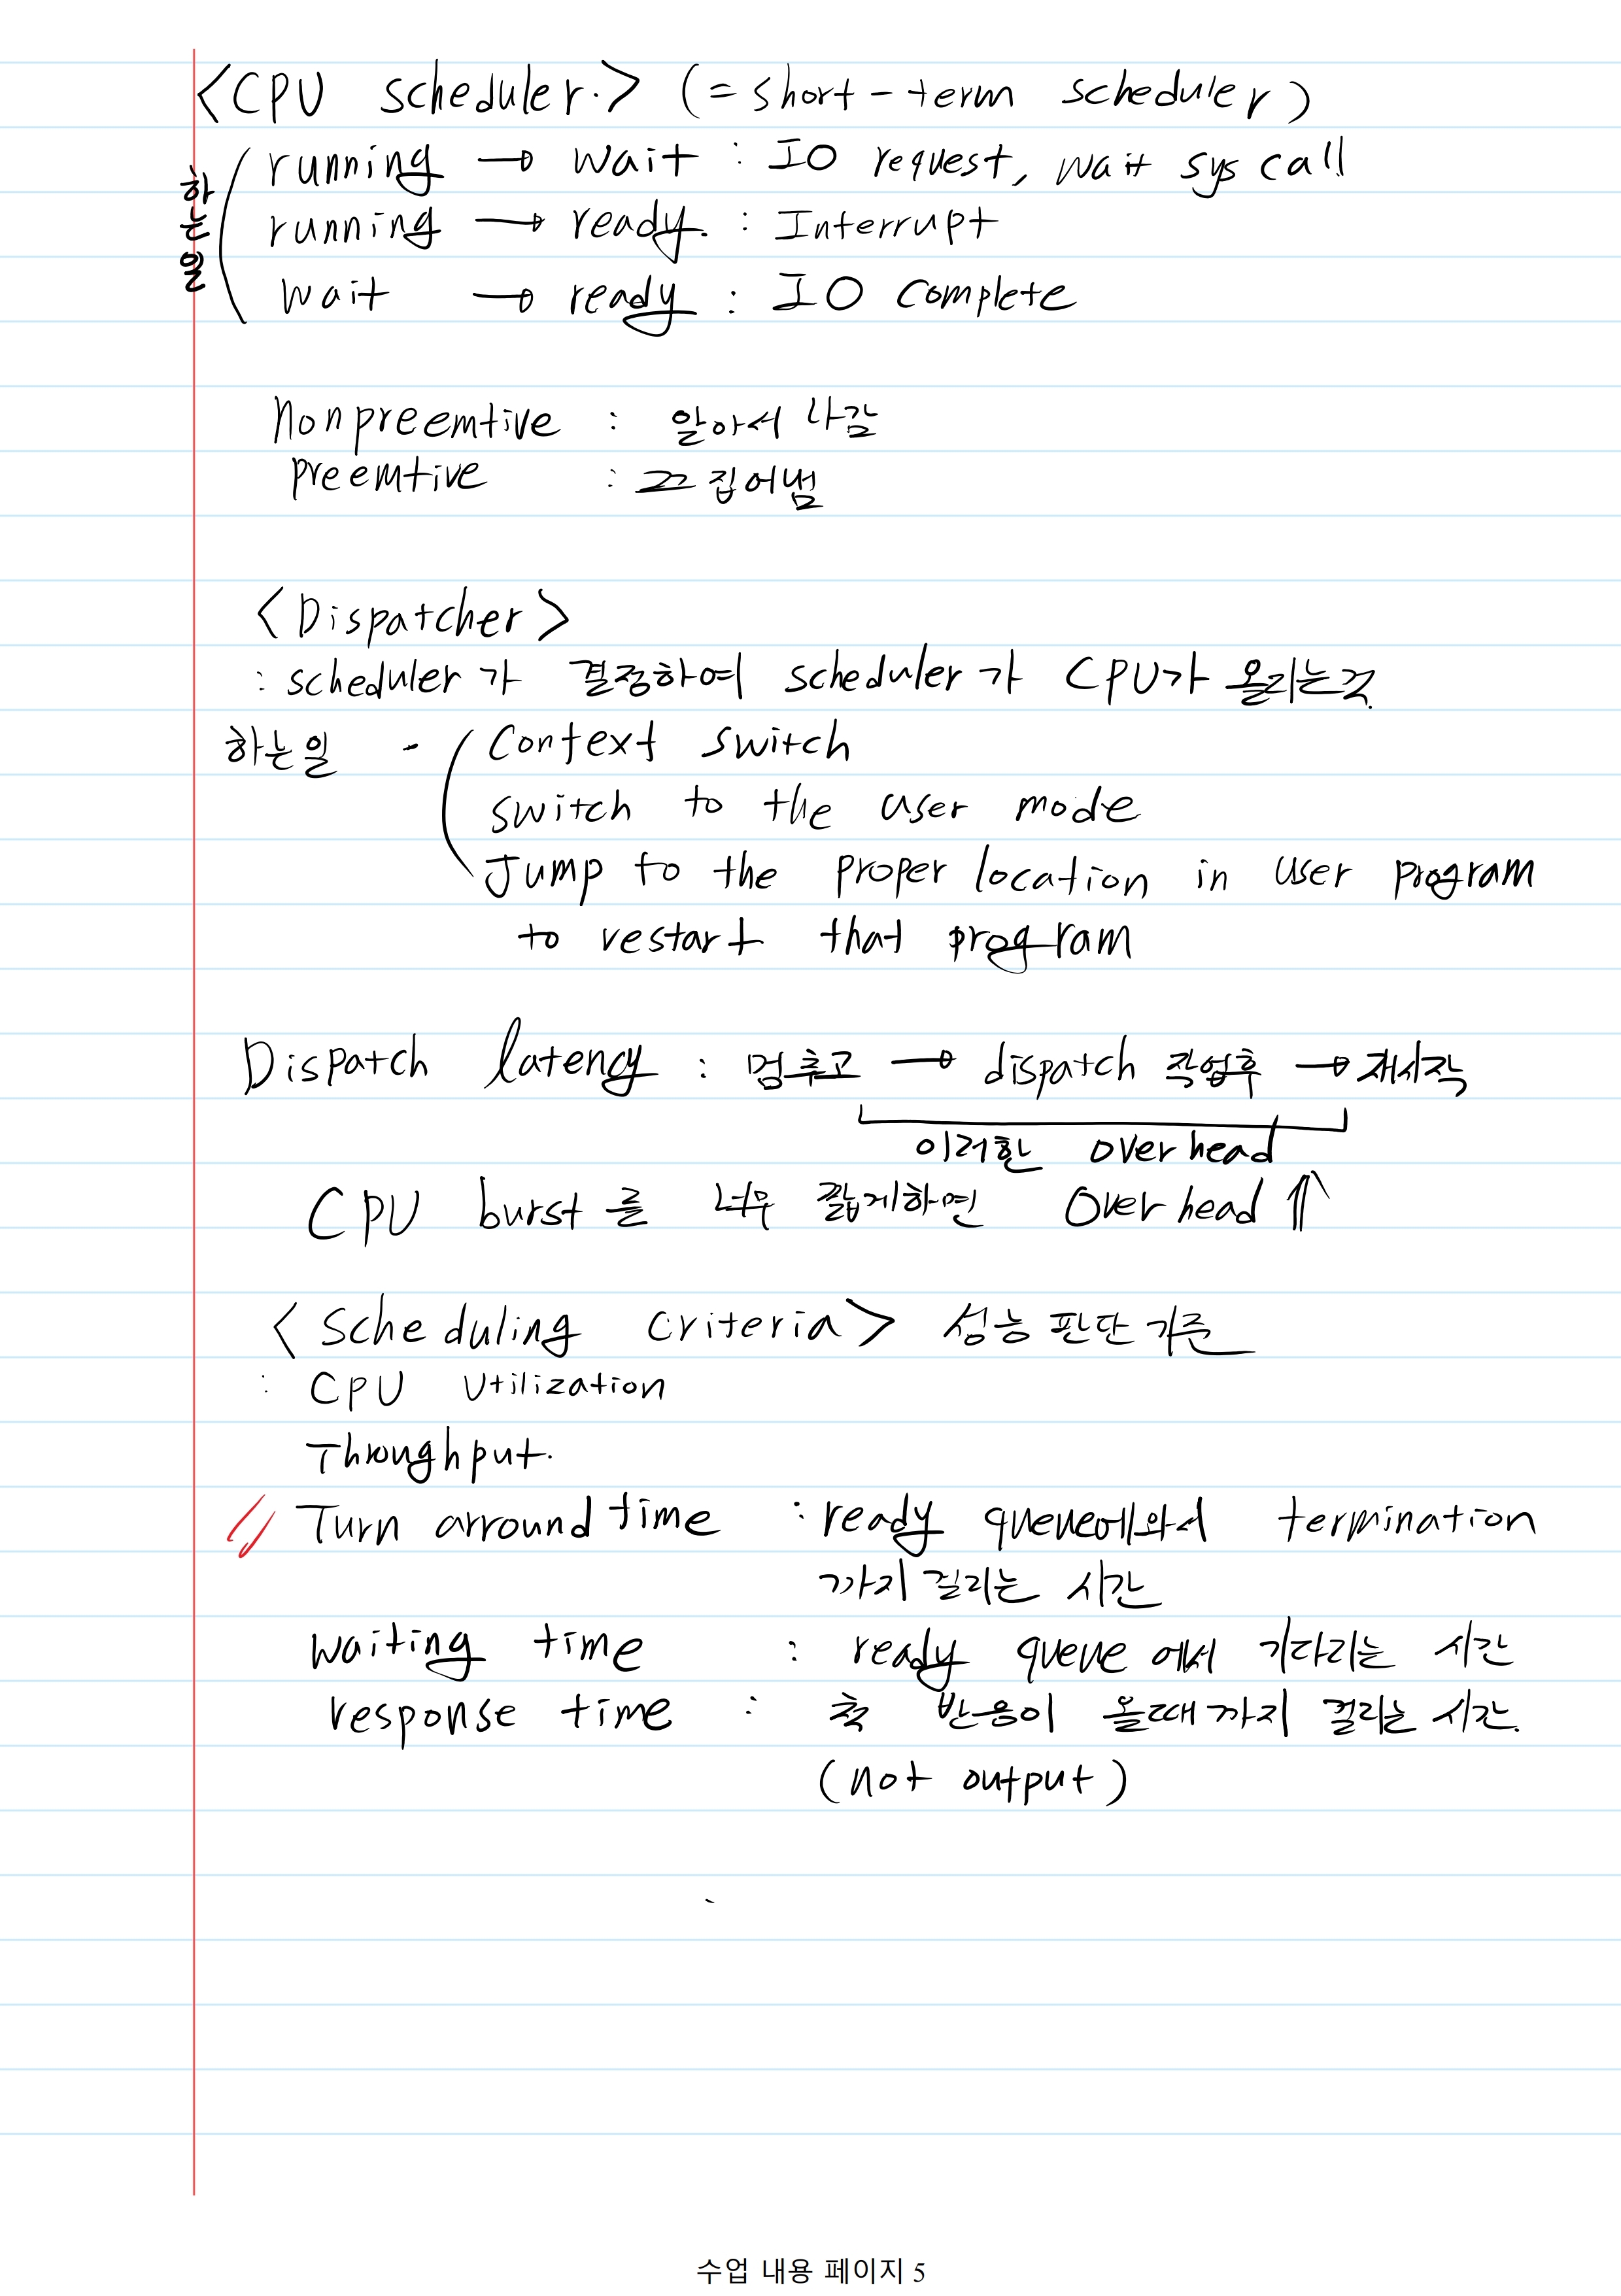 <CPU scheduler.> (= short-term scheduler)
하는일
running → wait : IO request, wait sys call
running → ready. : Interrupt
wait → ready : IO complete
Nonpreemtive : 알아서 나감
preemtive : 집어냄
<Dispatcher>
: scheduler가 결정하여 scheduler가 CPU가 올리는것.
하는일 - Context switch
switch to the user mode
Jump to the proper location in user program
to restart that program
Dispatch latency : 멈추고 → dispatch 작업후 → 재시작
이러한 overhead
CPU burst를 너무 짧게하면 Overhead ⇑
<Scheduling criteria> 성능 판단 기준
: CPU Utilization
Throughput.
// Turn arround time : ready queue에와서 termination
까지 걸리는 시간
waiting time : ready queue 에서 기다리는 시간
response time : 첫 반응이 올때까지 걸리는 시간.
(not output)
수업 내용 페이지 5